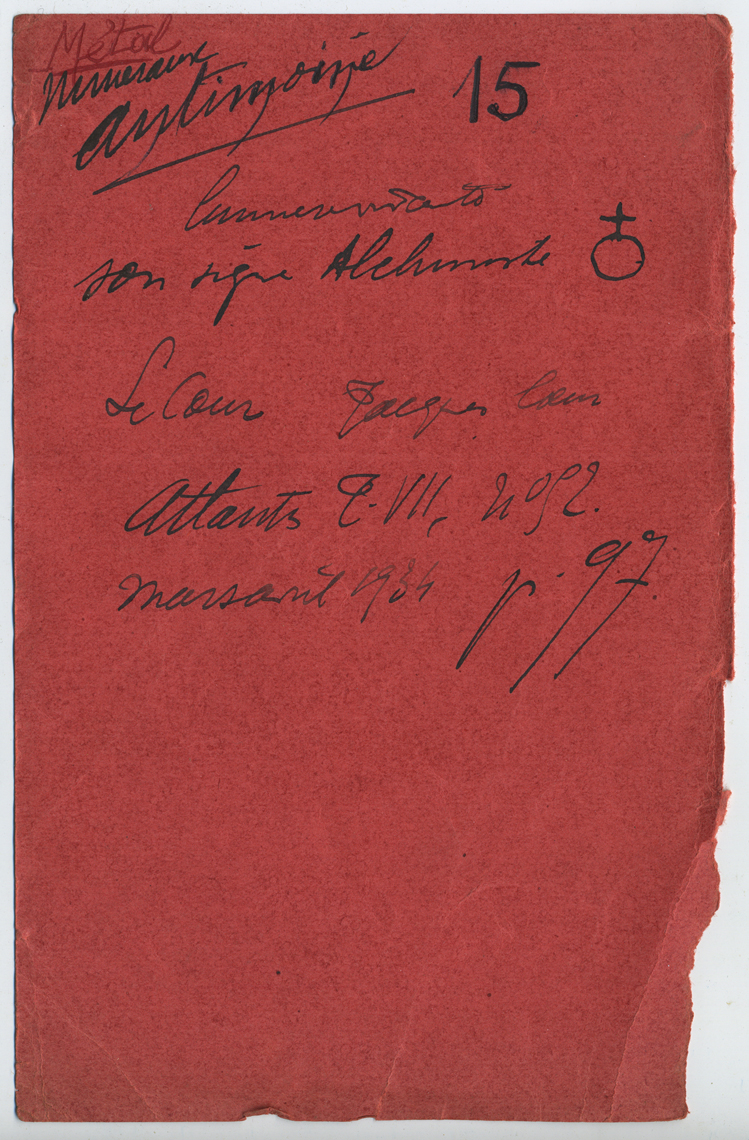 Métal
Mineraux
Antimoine 15
son signe Alchimiste ♁
Le Cour Jacques Cœur
Atlantis T. VII, n° 52.
mars avril 1934 p. 97